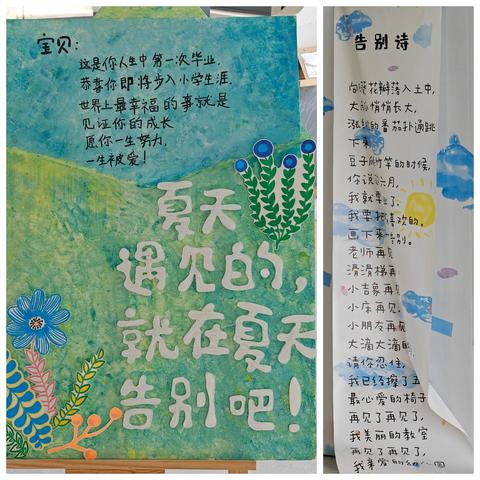 宝贝:
这是你人生中第一次毕业,
恭喜你即将步入小学生涯,
世界上最幸福的事就是
见证你的成长
愿你一生努力,
一生被爱!
夏天
遇见的,
就在夏天
告别吧!
告别诗
花瓣落入土中,
大 悄悄长大,
的番茄扑通跳
下来
豆子 竹竿的时候,
你说 六月,
我就 了.
我要把喜欢的,
画下来告别。
老师再见
滑滑梯再
小吉象再见
小床再见
小朋友再见
大滴大滴的
请你忍住,
我已经擦了五
最心爱的椅子
再见了再见了,
我美丽的教室
再见了再见了,
我亲爱的幼儿园